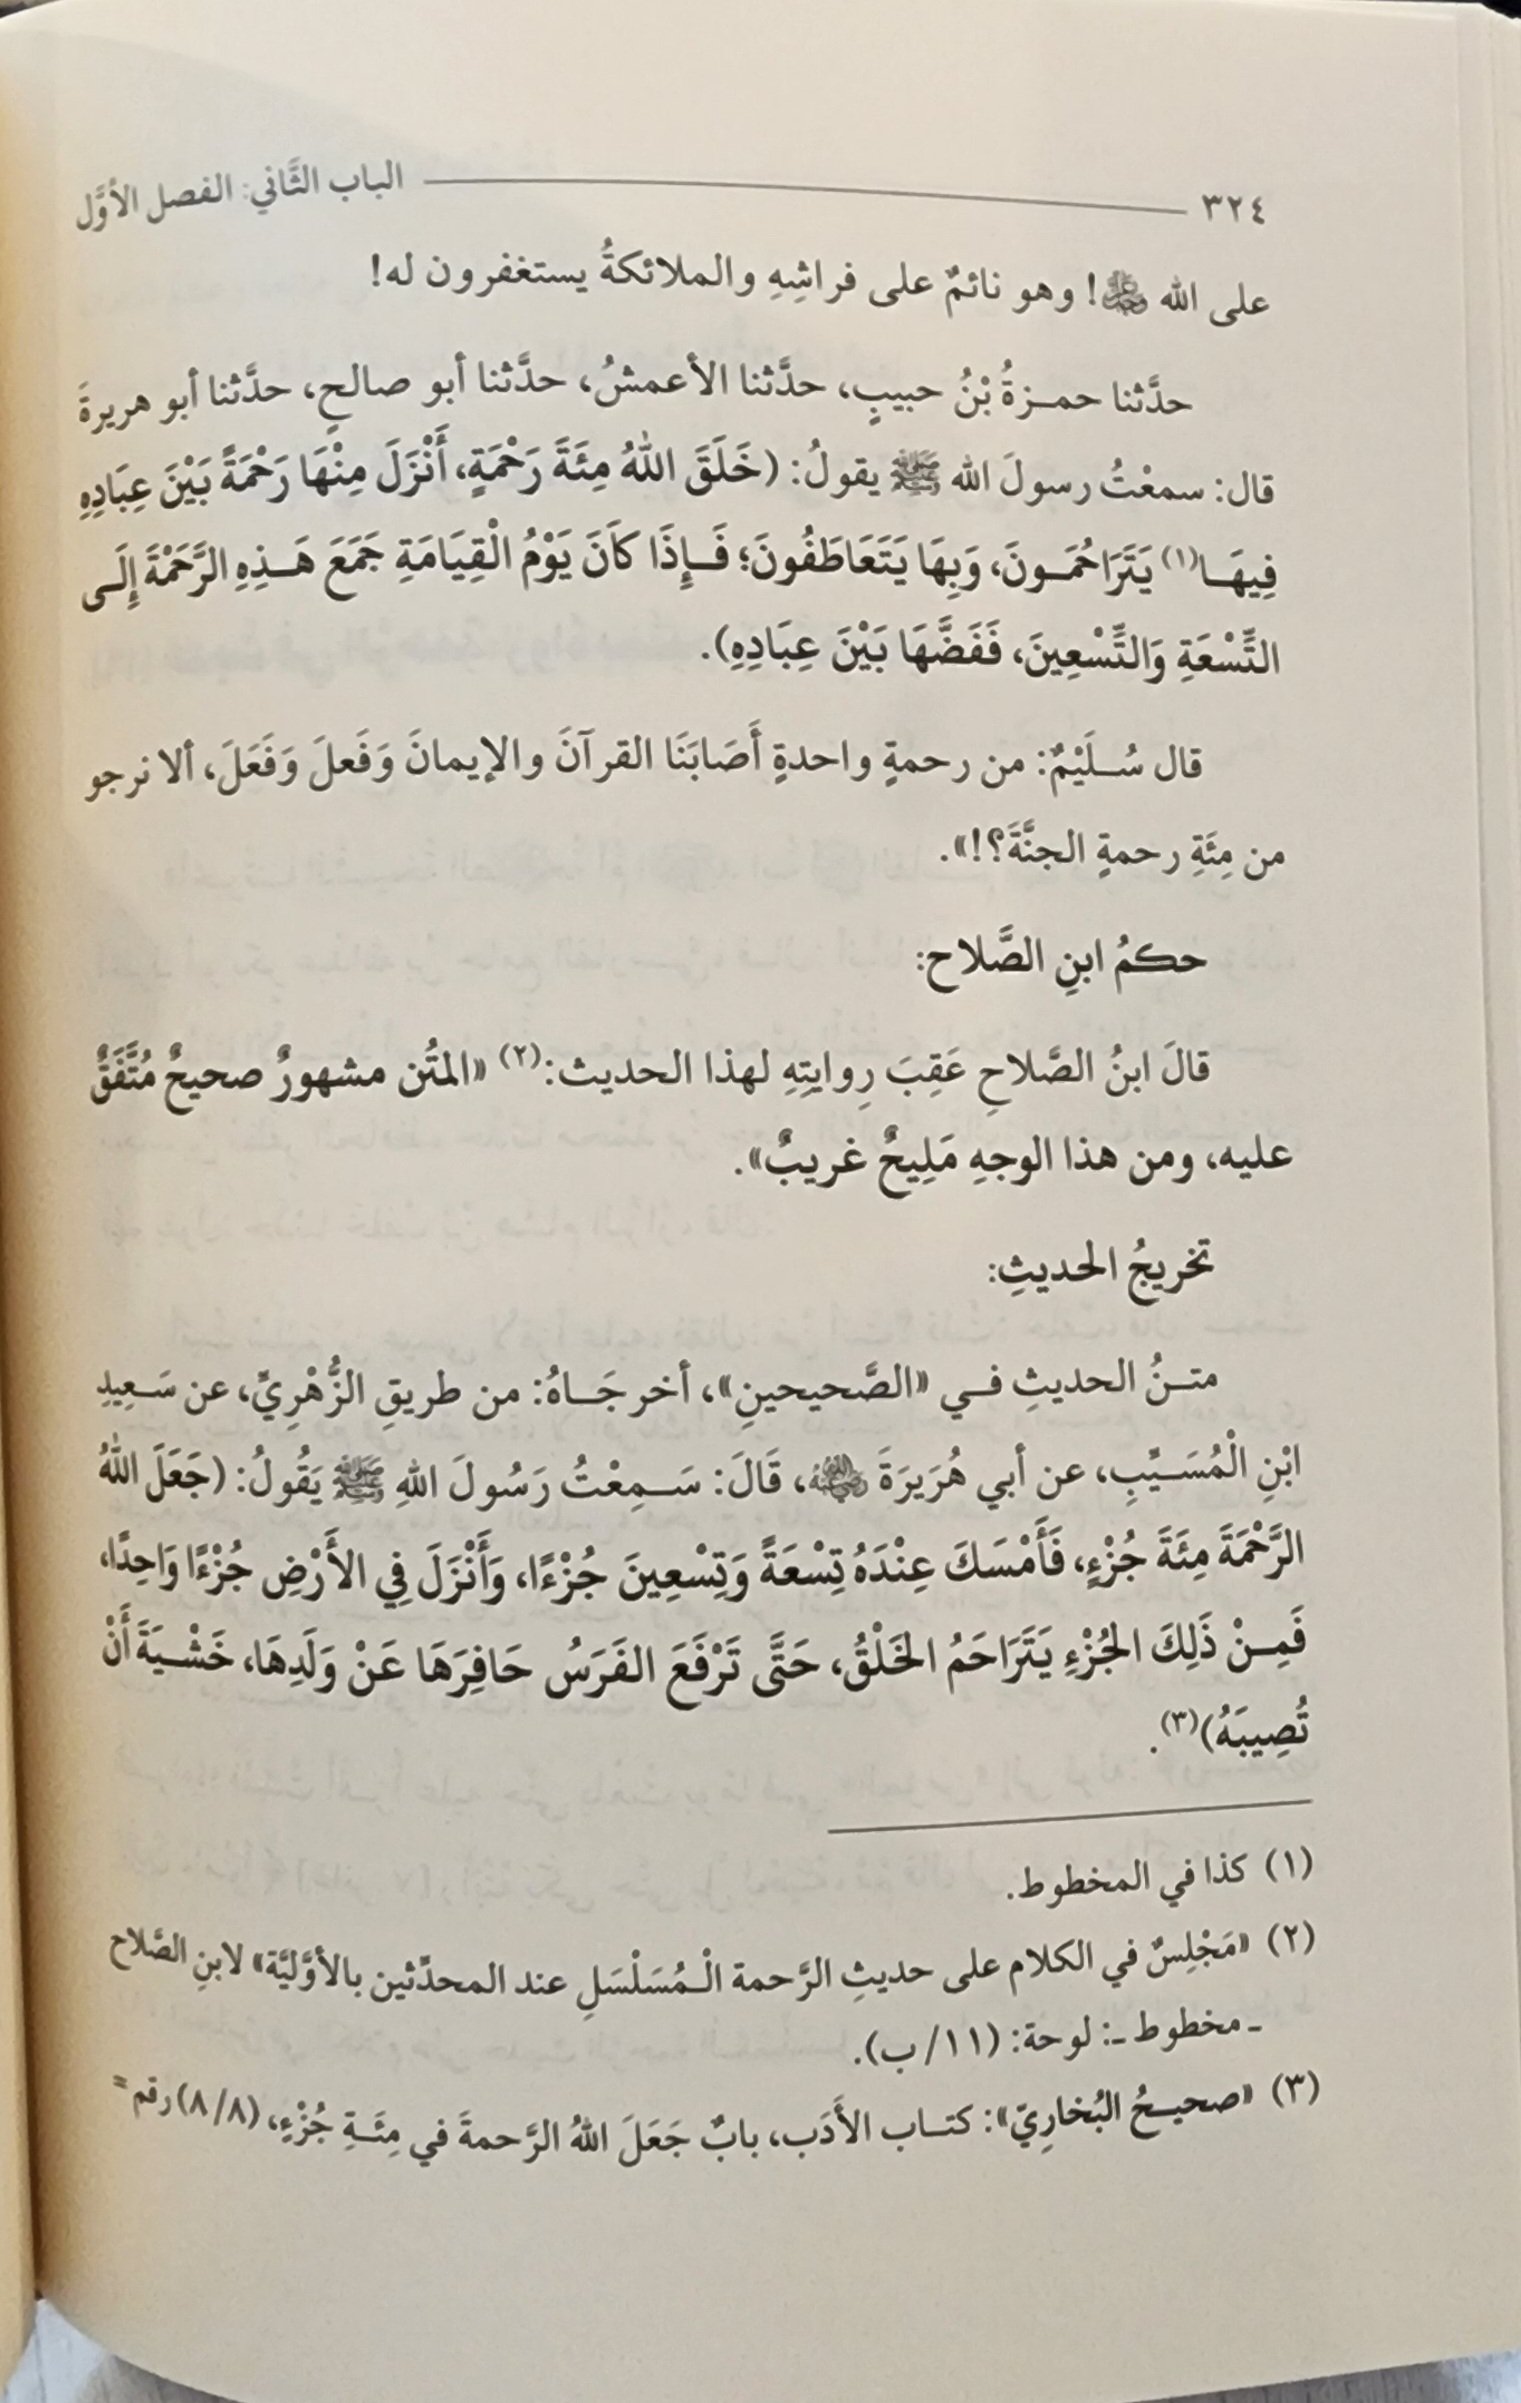 ٣٢٤ الباب الثَّاني: الفصل الأوَّل
على الله ﷻ! وهو نائمٌ على فراشِهِ والملائكةُ يستغفرون له!
حدَّثنا حمـزةُ بْنُ حبيبٍ، حدَّثنا الأعمشُ، حدَّثنا أبو صالحٍ، حدَّثنا أبو هريرةَ
قال: سمعْتُ رسولَ الله ﷺ يقولُ: (خَلَقَ اللهُ مِئَةَ رَحْمَةٍ، أَنْزَلَ مِنْهَا رَحْمَةً بَيْنَ عِبَادِهِ
فِيهَـا(١) يَتَرَاحُمَـونَ، وَبِهَا يَتَعَاطَفُونَ؛ فَـإِذَا كَانَ يَوْمُ الْقِيَامَةِ جَمَعَ هَـذِهِ الرَّحَمْةَ إِلَـى
التِّسْعَةِ وَالتِّسْعِينَ، فَفَضَّهَا بَيْنَ عِبَادِهِ).
قال سُـلَيْمٌ: من رحمةٍ واحدةٍ أَصَابَنَا القرآنَ والإيمانَ وَفَعلَ وَفَعَلَ، ألا نرجو
من مِئَةِ رحمةٍ الجنَّةَ؟!».
حكمُ ابنِ الصَّلاح:
قالَ ابنُ الصَّلاحِ عَقِبَ رِوايتِهِ لهذا الحديث:(٢) «المتْن مشهورٌ صحيحٌ مُتَّفَقٌ
عليه، ومن هذا الوجهِ مَلِيحٌ غريبٌ».
تخريجُ الحديثِ:
متـنُ الحديثِ فـي «الصَّحيحينِ»، أخرجَـاهُ: من طريقِ الزُّهْرِيِّ، عن سَـعِيدِ
ابْنِ الْمُسَـيِّبِ، عن أبي هُرَيرَةَ رضي الله عنه، قَالَ: سَـمِعْتُ رَسُولَ اللهِ ﷺ يَقُولُ: (جَعَلَ اللهُ
الرَّحْمَةَ مِئَةَ جُزْءٍ، فَأَمْسَكَ عِنْدَهُ تِسْعَةً وَتِسْعِينَ جُزْءًا، وَأَنْزَلَ فِي الأَرْضِ جُزْءًا وَاحِدًا،
فَمِـنْ ذَلِكَ الجُزْءِ يَتَرَاحَمُ الخَلْقُ، حَتَّى تَرْفَعَ الفَرَسُ حَافِرَهَا عَنْ وَلَدِهَا، خَشْـيَةَ أَنْ
تُصِيبَهُ)(٣).
(١) كذا في المخطوط.
(٢) «مَجْلِسٌ في الكلام على حديثِ الرَّحمة الْـمُسَلْسَلِ عند المحدِّثين بالأوَّليَّة» لابنِ الصَّلاح
ـ مخطوط ـ: لوحة: (١١/ ب).
(٣) «صحيـحُ البُخارِيّ»: كتـاب الأَدَب، بابٌ جَعَلَ اللهُ الرَّحمةَ في مِئَـةِ جُزْءٍ، (٨/٨) رقم =